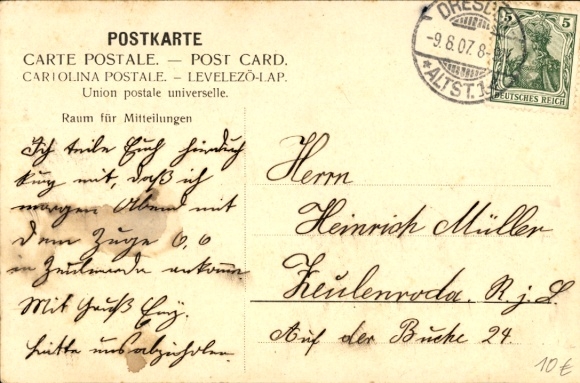 POSTKARTE
CARTE POSTALE. — POST CARD.
CARTOLINA POSTALE. — LEVELEZŐ-LAP.
Union postale universelle.
Raum für Mitteilungen
Ich teile Euch hierduch
kurz mit, daß ich
morgen Abend mit
dem Zuge 6,6
in Zeulenroda ankomme.
Mit Gruß
bitte uns abzuholen.
DRESD
-9.6.07. 8-
*ALTST. 1.
5 5
DEUTSCHES REICH
Herrn
Heinrich Müller
Zeulenroda. R. j. L.
Auf der Buche 24.
10€